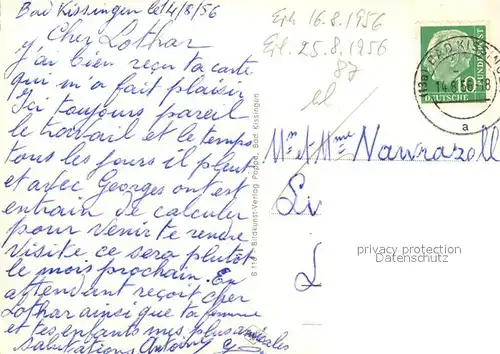 Bad Kissingen le 14/8/56
Cher Lothar
j'ai bien reçu ta carte
qui m'a fait plaisir
Ici toujours pareil
le travail et le temps
tous les jours il pleut
et avec Georges on est
entrain de calculer
pour venir te rendre
visite. ce sera plutôt
le mois prochain. En
attendant reçoit cher
Lothar ainsi que ta femme
et tes enfants mes plus amicales
salutations Antoine
Erh 16.8.1956
Erl. 25.8.1956
87
DEUTSCHE BUNDESPOST
10
(13a) BAD KISSINGEN
14.8.56-18
a
B 118 Bildkunst-Verlag Poppe, Bad Kissingen
Mr et Mme Nawrazoll
Li
privacy protection
Datenschutz